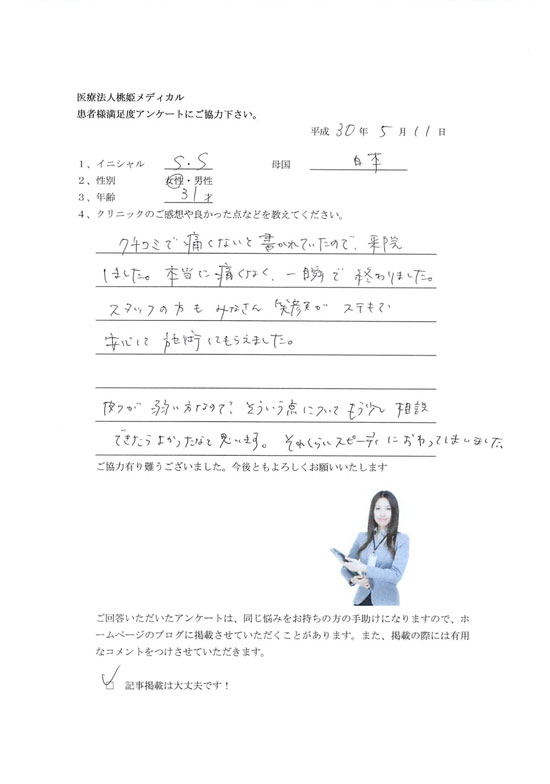 医療法人桃姫メディカル
患者様満足度アンケートにご協力下さい。
平成 30 年 5 月 11 日
1、イニシャル S.S 母国 日本
2、性別 女性・男性
3、年齢 31 才
4、クリニックのご感想や良かった点などを教えてください。
クチコミで痛くないと書かれていたので、来院
しました。本当に痛くなく、一瞬で終わりました。
スタッフの方もみなさん笑顔がステキで
安心して施術してもらえました。
皮フが弱い方なので、そういう点についてもう少し相談
できたらよかったなと思います。それくらいスピーディにおわってしまいました。
ご協力有り難うございました。今後ともよろしくお願いいたします
ご回答いただいたアンケートは、同じ悩みをお持ちの方の手助けになりますので、ホ
ームページのブログに掲載させていただくことがあります。また、掲載の際には有用
なコメントをつけさせていただきます。
記事掲載は大丈夫です！